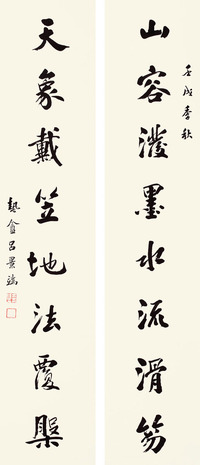 壬戌季秋
山容潑墨水流滑笏
天象戴笠地法覆槃
蟄盦呂景端